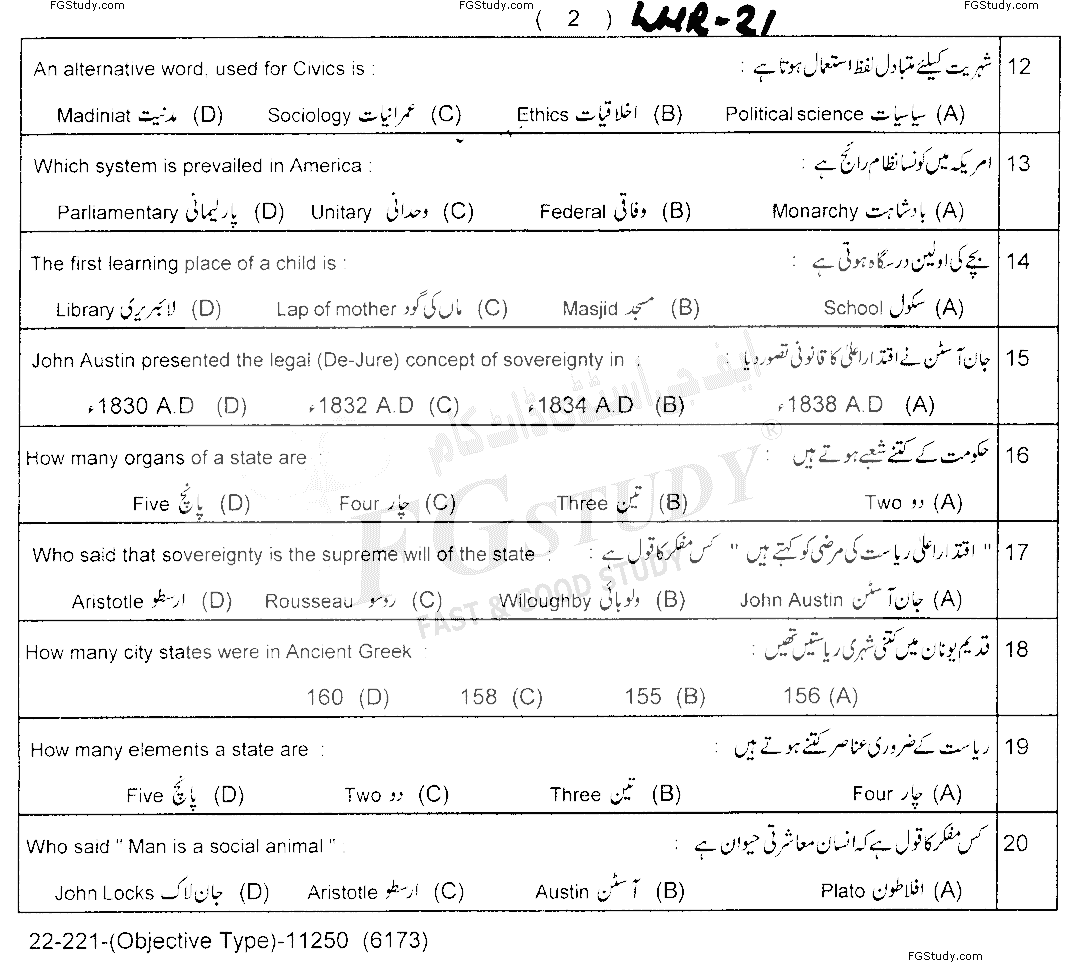 FGStudy.com FGStudy.com FGStudy.com
( 2 ) LHR-21
An alternative word, used for Civics is : شہریت کیلئے متبادل لفظ استعمال ہوتا ہے : 12
Madiniat مدنیت (D) Sociology عمرانیات (C) Ethics اخلاقیات (B) Political science سیاسیات (A)
Which system is prevailed in America : امریکہ میں کونسا نظام رائج ہے : 13
Parliamentary پارلیمانی (D) Unitary وحدانی (C) Federal وفاقی (B) Monarchy بادشاہت (A)
The first learning place of a child is : بچے کی اولین درسگاہ ہوتی ہے : 14
Library لائبریری (D) Lap of mother ماں کی گود (C) Masjid مسجد (B) School سکول (A)
John Austin presented the legal (De-Jure) concept of sovereignty in : جان آسٹن نے اقتدار اعلیٰ کا قانونی تصور دیا : 15
1830 A.D ء (D) 1832 A.D ء (C) 1834 A.D ء (B) 1838 A.D ء (A)
How many organs of a state are : حکومت کے کتنے شعبے ہوتے ہیں : 16
Five پانچ (D) Four چار (C) Three تین (B) Two دو (A)
Who said that sovereignty is the supreme will of the state : " اقتدار اعلیٰ ریاست کی مرضی کو کہتے ہیں " کس مفکر کا قول ہے : 17
Aristotle ارسطو (D) Rousseau روسو (C) Wiloughby ولوبائی (B) John Austin جان آسٹن (A)
How many city states were in Ancient Greek : قدیم یونان میں کتنی شہری ریاستیں تھیں : 18
160 (D) 158 (C) 155 (B) 156 (A)
How many elements a state are : ریاست کے ضروری عناصر کتنے ہوتے ہیں : 19
Five پانچ (D) Two دو (C) Three تین (B) Four چار (A)
Who said " Man is a social animal " : کس مفکر کا قول ہے کہ انسان معاشرتی حیوان ہے : 20
John Locks جان لاک (D) Aristotle ارسطو (C) Austin آسٹن (B) Plato افلاطون (A)
22-221-(Objective Type)-11250 (6173)
FGStudy.com
ایف جی اسٹڈی ڈاٹ کام
FGSTUDY ®
FAST & GOOD STUDY